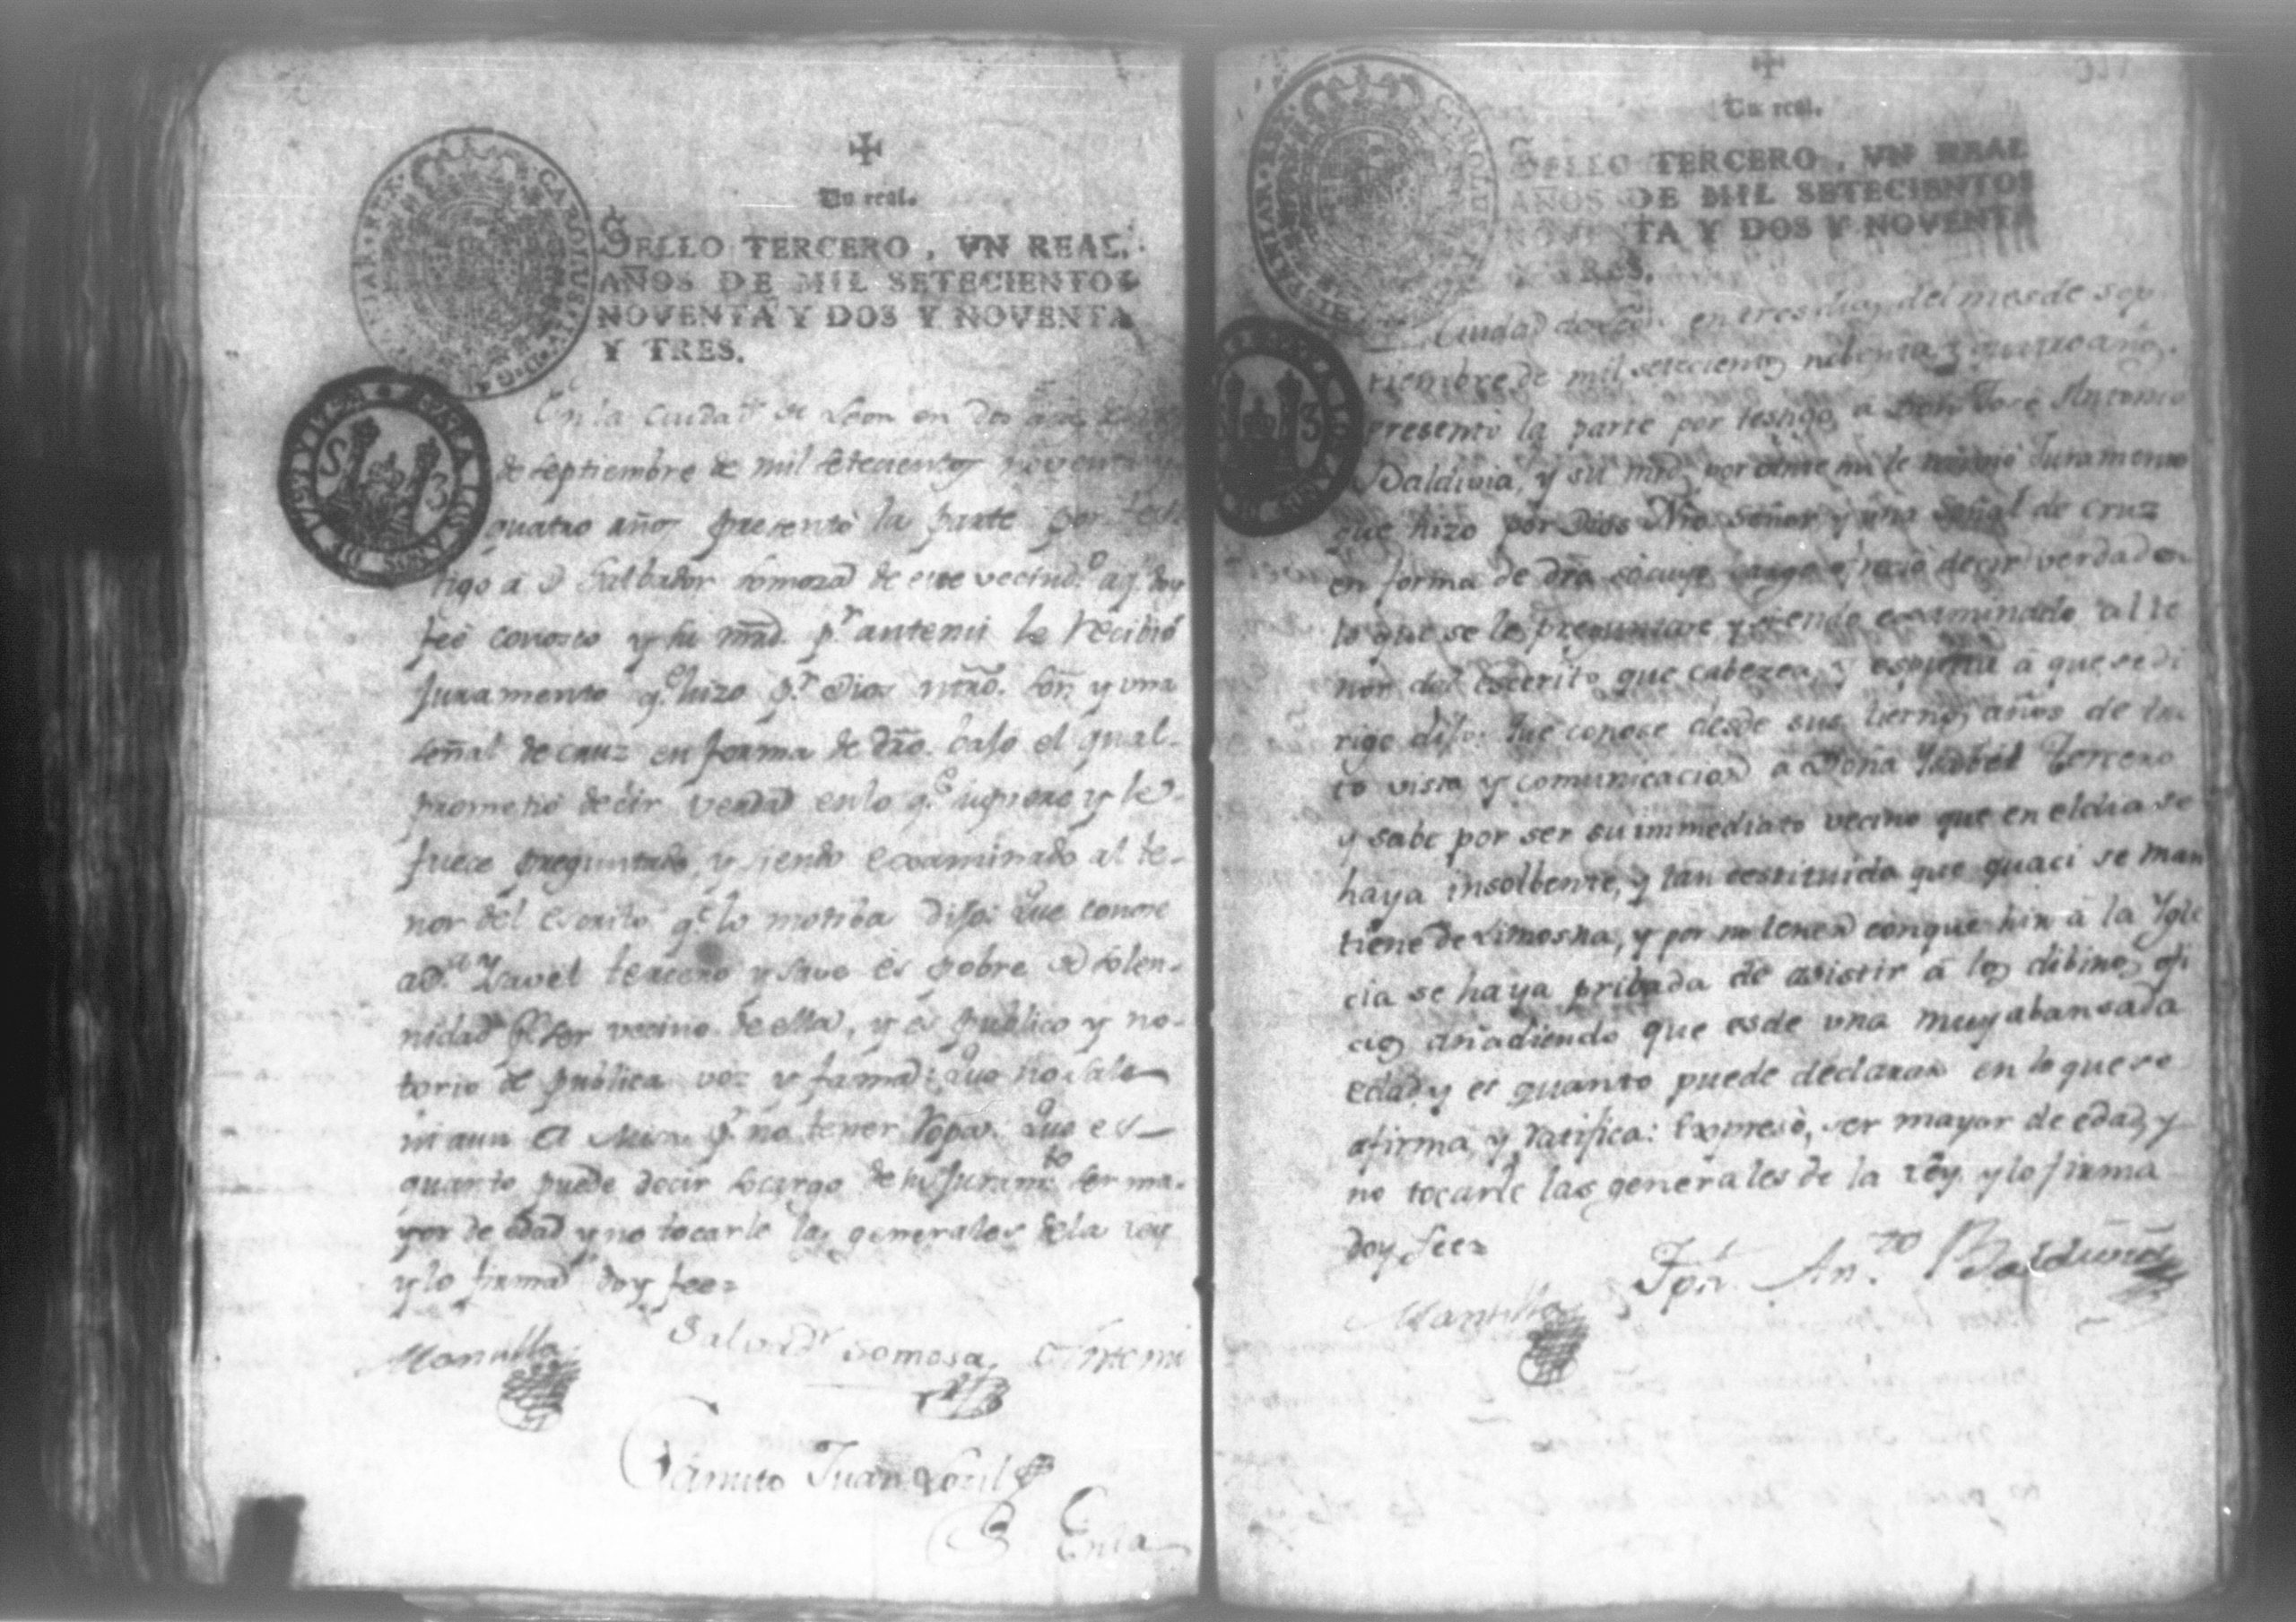 ✠
Un real.
SELLO TERCERO, VN REAL,
AÑOS DE MIL SETECIENTOS
NOVENTA Y DOS Y NOVENTA
Y TRES.
En la ciudad de Leon en dos
de septiembre de mil setecientos noventa y
quatro años presentó la parte por tes-
tigo á D Salbador Somoza de este vecind.º aq.
feè conosco y su mrd. p.r antemi le recibió
juramento q.e hizo p.r Dios ntrõ. Señ y una
señal de cruz en forma de drõ. bajo el qual-
prometió decir verdad en lo q.e supiere y le-
fuece preguntado, y siendo examinado al te-
nor del escrito q.e lo motiba dijo: Que conose
a D.a Ysavel tercero y save es pobre de solen-
nidad p.r ser vecino de ella, y es publico y no-
torio de publica voz y fama: Que no sale
ni aun a Misa p.r no tener ropa: Que es
quanto puede decir socargo de su juram.to ser ma-
yor de edad y no tocarle las generales de la ley
y lo firma doy fee=
Mantilla Salvad.r Somosa. Antemi
Juan
En la
✠
Un real.
SELLO TERCERO, VN REAL
AÑOS DE MIL SETECIENTOS
NOVENTA Y DOS Y NOVENTA
Y TRES.
Ciudad de Leon en tres dias del mes de sep
tiembre de mil setecientos nobenta y quatro años.
presentó la parte por testigo a Don José Antonio
Baldivia, y su mrd, por ante mi le recivió Juramento
que hizo por Dios Nrõ Señor y una señal de cruz
en forma de drõ socuyo cargo ofreció decir verdad en
lo que se le preguntare y siendo examinado al te
nor del escrito que cabezea, y a que se di
rige dijo: Que conose desde sus tiernos años de tra
to vista y comunicacion a Doña Ysabel Tercero
y sabe por ser su immediato vecino que en el dia se
haya insolbente, y tan destituida que quaci se man
tiene de limosna, y por no tener conque hir á la Ygle
cia se haya pribada de asistir á los dibinos ofi
cios añadiendo que es de una muy abansada
edad y es quanto puede declarar en lo que se
afirma, y ratifica: Expresó, ser mayor de edad, y
no tocarle las generales de la ley y lo firma
doy fee=
Mantilla Jph. An.to Baldivia